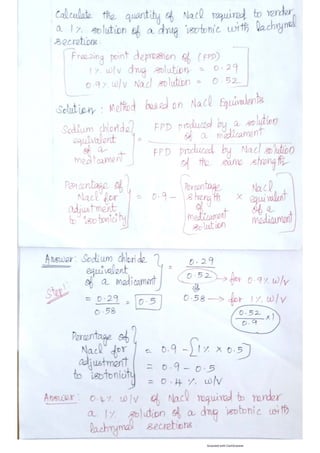 Calculate the quantity of NaCl required to render
a 1% solution of a drug isotonic with lachrymal
secretions.
Freezing point depression of (FPD)
1% w/v drug solution = 0.29
0.9% w/v NaCl solution = 0.52
Solution : Method based on NaCl Equivalents
Sodium chloride equivalent of a medicament } = FPD produced by a solution of a medicament
FPD produced by NaCl solution of the same strength
Percentage of NaCl for adjustment to isotonicity } = 0.9 - [ Percentage strength of medicament solution × NaCl equivalent of a medicament ]
Answer: Sodium chloride equivalent of a medicament } = 0.29
0.52 → for 0.9% w/v
Step 1
= 0.29 / 0.58 = 0.5
0.58 → for 1% w/v
0.52 / 0.9 × 1
Percentage of NaCl for adjustment to isotonicity } = 0.9 - [1% × 0.5]
= 0.9 - 0.5
= 0.4 % w/v
Answer: 0.4% w/v of NaCl required to render
a 1% solution of a drug isotonic with
lachrymal secretions.
Scanned with CamScanner